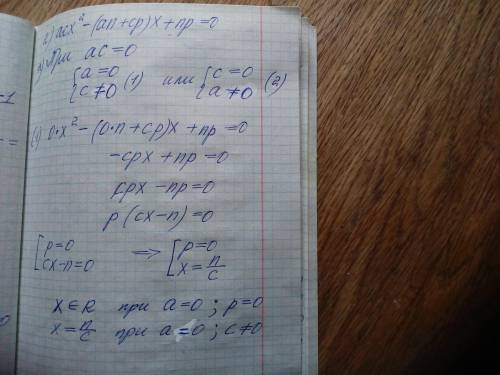 г) acx² - (an + cp)x + np = 0
а) При ac = 0
{a = 0 {c ≠ 0 (1) или {c = 0 {a ≠ 0 (2)
(1) 0·x² - (0·n + cp)x + np = 0
-cpx + np = 0
cpx - np = 0
p(cx - n) = 0
[p = 0 [cx - n = 0 ⟹ [p = 0 [x = n/c
x ∈ R при a = 0; p = 0
x = n/c при a = 0; c ≠ 0